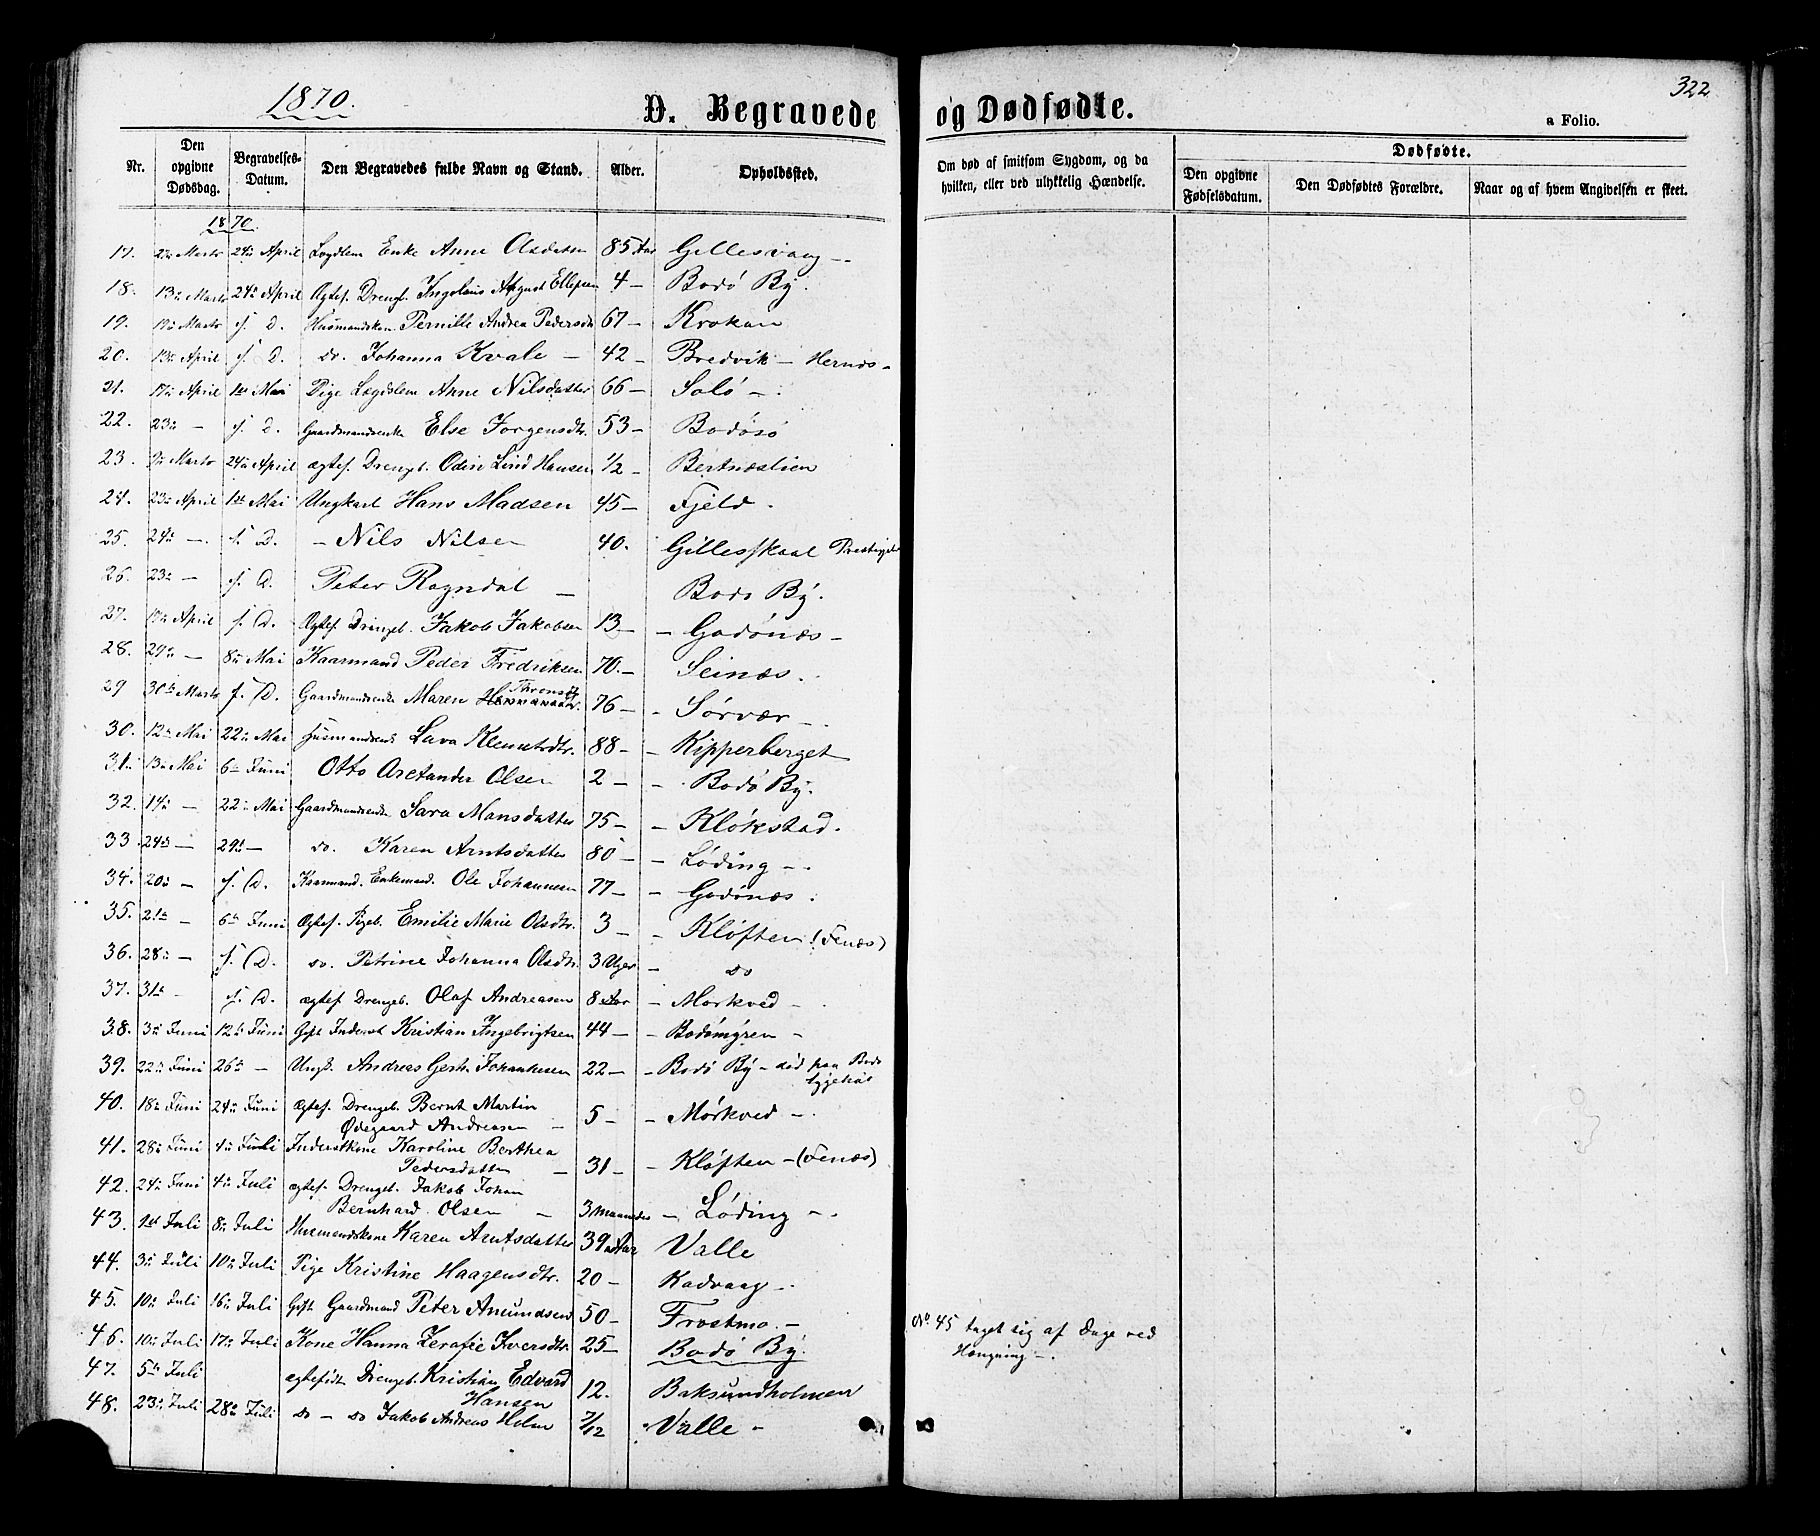 1870.
322
D. Begravede og Dødfødte.
a Folio.
Nr. Den opgivne Dødsdag. Begravelses-Datum. Den Begravedes fulde Navn og Stand. Alder. Opholdssted. Om død af smitsom Sygdom, og da hvilken, eller ved ulykkelig Hændelse. Dødfødte. Den opgivne Fødselsdatum. Den Dødfødtes Forældre. Naar og af hvem Angivelsen er skeet.
1870.
17. Marts 24de April Lægdslem Enke Anne Olsdatter 85 Aar Gillesvaag -
18. 13de Marts 24de April Ægtef. Drengb. Ingolaus August Ellefsen 4 - Bodø By.
19. 19de Marts s. D. Husmandskone Pernille Andrea Pedersd 67 - Krokan
20. 13de April s. D. do. Johanna Kvale - 42 - Bredvik - Hernes -
21. 17de April 1ste Mai Pige Lægdslem Anne Nilsdatter 66 - Salø -
22. 23de - s. D. Gaardmandsenke Else Jørgensdtr. 53 - Bodøsø
23. 9de Marts 24de April ægtef. Drengb. Odin Lind Hansen 1/2 - Bertnæslien
24. 23de April 1ste Mai Ungkarl Hans Madsen 45 - Fjeld -
25. 24de - s. D. - Nils Nilsen 40. Gilleskaal Prestegjeld
26. 23de - s. D. Peter Rogndal - Bodø By.
27. 17de April s. D. Ægtef. Drengeb. Jakob Jakobsen 13 - - Godønæs -
28. 29de - 8de Mai Kaarmand Peder Fredriksen 70. - Seinæs.
29 30te Marts s. D. Gaardmandsenke Maren Thronsdtr 76 - - Sørvær -
30. 12te Mai 22de Mai Husmandsenke Lava Klemetsdtr. 88 - - Kipperberget
31. 13de Mai 6te Juni Otto Aretander Olsen 2 - - Bodø By.
32. 14de - 22de Mai Gaardmandsenke Sara Mansdatter 75 - - Kløkstad.
33. 24de - 29de - do. Karen Arntsdatter 80 - - Løding -
34. 20de - s. D. Kaarmand. Enkemand. Ole Johannesen 77 - - Godønæs
35. 21de - 6te Juni Ægtef. Pigeb. Emilie Marie Olsdtr. 3 - - Kløften (Fenæs)
36. 28de - s. D. do. Petrine Johanna Olsdtr. 3 Uger - do
37. 31te - s. D. ægtef. Drengeb. Olaf Andreasen 8 Aar - Mørkved -
38. 3die Juni 12te Juni Gift Inderst Kristian Ingebrigtsen 44 - - Bodømyren -
39. 22de Juni 26de - Ungk. Andreas Gerh. Johannesen 22 - - Bodø By - død paa Bodø
sygehus
40. 18de Juni 24de Juni Ægtef. Drengeb. Bernt Martin
Ødegaard Andreasen - 5 - - Mørkved -
41. 28de Juni 4de Juli Inderstkone Karoline Berthea
Pedersdatter - 31 - - Kløften - (Fenæs)
42. 24de Juni 4de Juli ægtef. Drengeb. Jakob Johan
Bernhard. Olsen - 3 maaneder - Løding -
43. 1ste Juli 8de Juli Husmandskone Karen Arntsdatter 39 Aar Valle
44. 3die Juli 10de Juli Pige Kristine Haagensdtr. 20 - Kadvaag -
45. 10de Juli 16de Juli Gift Gaardmand Peter Amundsen 50 - Frostmo - No. 45 taget sig af Dage ved
Hængning -
46. 10de Juli 17de Juli Kone Hanna Zerafie Iversdtr. 25 - Bodø By.
47. 5te Juli ægtefødt Drengeb. Kristian Edvard
Hansen 12. Baksundholmen
48. 23de Juli 28de Juli do - do Jakob Andreas Holm 7/12 Valle -